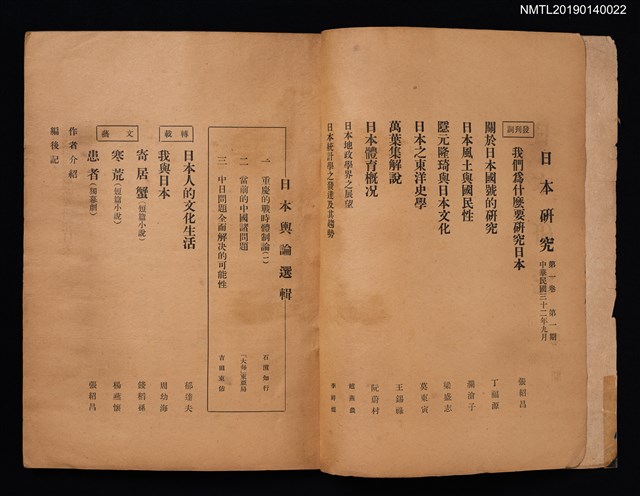 NMTL20190140022
日本研究 第一卷 第一期
中華民國三十二年九月
發刊詞
我們爲什麼要硏究日本 張紹昌
關於日本國號的硏究 丁福源
日本風土與國民性
隱元隆琦與日本文化 梁盛志
日本之東洋史學 莫東寅
萬葉集解說 王錫祿
日本體育概况 阮蔚村
日本地政學界之展望
日本統計學之發達及其趨勢
日本輿論選輯
一 重慶的戰時體制論(二) 石濱知行
二 當前的中國諸問題 「大每」東亞局
三 中日問題全面解決的可能性 吉田東祐
轉載
日本人的文化生活 郁達夫
我與日本 周幼海
文藝
寄居蟹(短篇小說) 錢稻孫
寒荒(短篇小說) 楊燕懷
患者(獨幕劇) 張紹昌
作者介紹
編後記